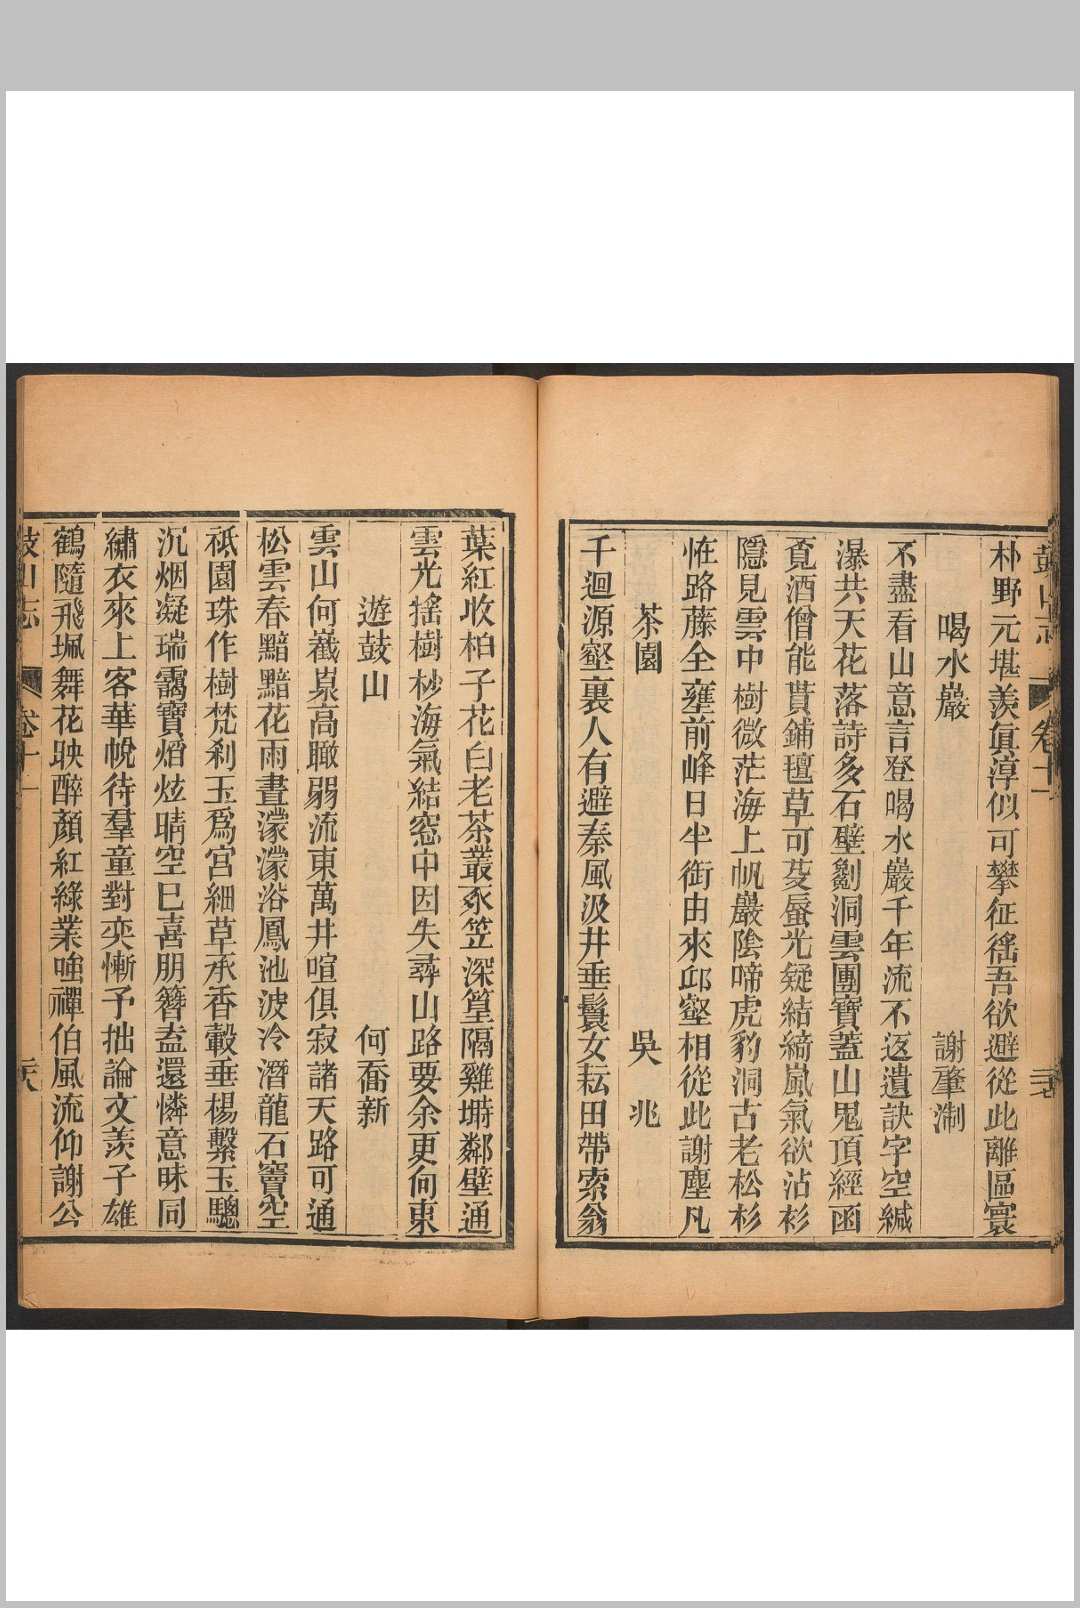 鼓山志 卷十一 三七
朴野元堪羨眞淳似可攀征徭吾欲避從此離區寰
喝水巖 謝肇淛
不盡看山意言登喝水巖千年流不返遺訣字空緘
瀑共天花落詩多石壁劖洞雲團寶蓋山鬼頂經函
覓酒僧能貰鋪氊草可芟蜃光疑結締嵐氣欲沾衫
隱見雲中樹微茫海上帆巖陰啼虎豹洞古老松杉
恠路藤全壅前峰日半銜由來邱壑相從此謝塵凡
茶園 吳兆
千迴源壑裏人有避秦風汲井垂鬟女耘田帶索翁
葉紅收柏子花白老茶叢豕笠深篁隔雞塒鄰壁通
雲光搖樹杪海氣結窓中因失尋山路要余更向東
遊鼓山 何喬新
雲山何嶻嵲高瞰弱流東萬井喧俱寂諸天路可通
松雲春黯黯花雨晝濛濛浴鳳池波冷潛龍石竇空
祗園珠作樹梵刹玉爲宮細草承香轂垂楊繫玉驄
沉烟凝瑞靄寶熖炫晴空已喜朋簪盍還憐意昧同
繡衣來上客華帨待羣童對奕慚予拙論文羨子雄
鶴隨飛珮舞花映醉顏紅綠業嗤禪伯風流仰謝公
鼓山志 卷十一 六